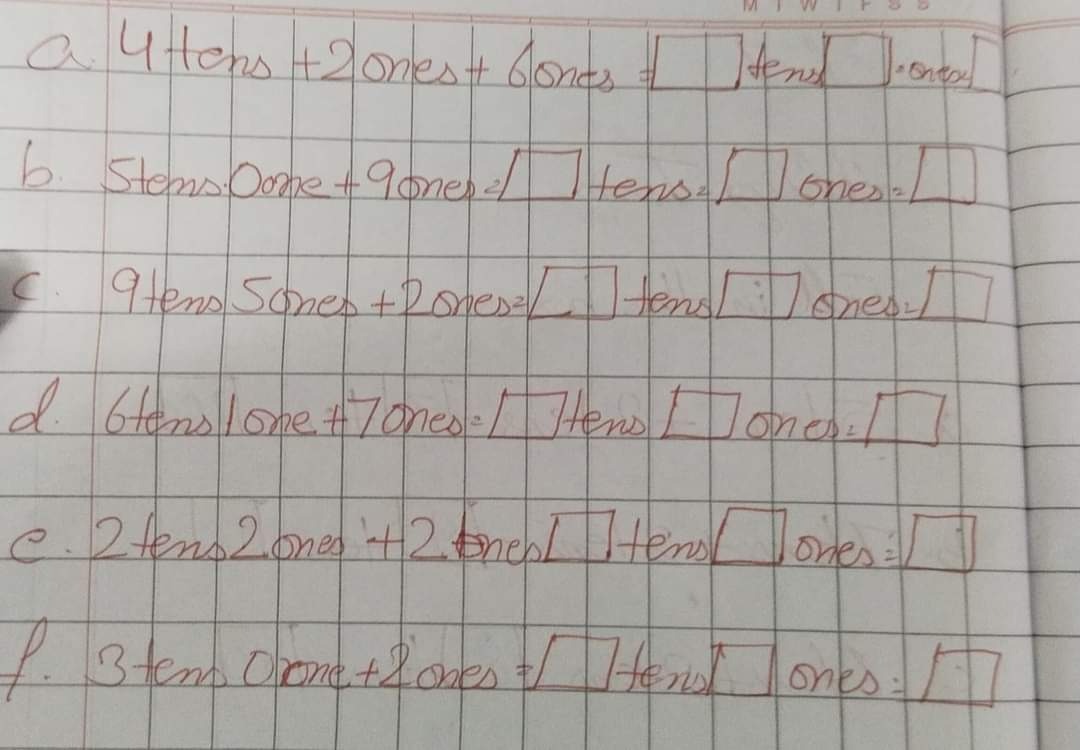 M T W T F S S
a. 4 tens + 2 ones + 6 ones = □ tens □ ones □
b. 5 tens 0 one + 9 ones = □ tens = □ ones = □
c. 9 tens 5 ones + 2 ones = □ tens □ ones = □
d. 6 tens 1 one + 7 ones = □ tens □ ones = □
e. 2 tens 2 ones + 2 ones □ tens □ ones = □
f. 3 tens 0 one + 2 ones = □ tens □ ones = □